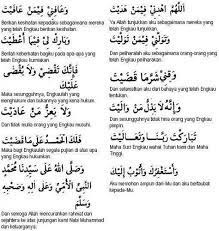 اَللّٰهُمَّ اهْدِنِيْ فِيْمَنْ هَدَيْتَ
Ya Allah tunjukkan aku sebagaimana mereka
yang telah Engkau tunjukkan.
وَعَافِنِي فِيْمَنْ عَافَيْتَ
Berikan kesihatan kepadaku sebagaimana mereka
yang telah Engkau berikan kesihatan.
وَتَوَلَّنِي فِيْمَنْ تَوَلَّيْتَ
Dan peliharakan aku sebagaimana orang-orang
yang telah Engkau
وَبَارِكْ لِي فِيْمَا أَعْطَيْتَ
Berikan keberkatan bagiku pada apa-apa
yang telah Engkau
وَقِنِيْ شَرَّمَا قَضَيْتَ
Dan selamatkan aku
yang telah Engkau
فَإِنَّكَ تَقْضِيْ وَلَا يُقْضَى
عَلَيْكَ
Maka sesungguhnya, Engkaulah yang
menghukum dan bukannya yang kena hukum.
وَإِنَّهُ لَا يَذِلُّ مَنْ وَالَيْتَ
Dan sesungguhnya tidak hina orang yang
Engkau
وَلَا يَعِزُّ مَنْ عَادَيْتَ
Dan tidak mulia orang yang Engkau
تَبَارَكْتَ رَبَّنَا وَتَعَالَيْتَ
Maha Suci Engkau wahai Tuhan kami dan Maha
Tinggi.
فَلَكَ الْحَمْدُ عَلَى مَا قَضَيْتَ
Maka bagi Engkau segala pujian di atas apa
yang Engkau hukumkan.
وَأَسْتَغْفِرُكَ وَأَتُوْبُ إِلَيْكَ
Aku memohon ampun dari-Mu dan aku bertaubat
kepada-Mu.
وَصَلَّى اللهُ عَلَى سَيِّدِنَا مُحَمَّدٍ
النَّبِيِّ الْأُمِّيِّ وَعَلَى آلِهِ وَصَحْبِهِ
وَسَلَّمَ
Dan semoga Allah mencurahkan rahmat dan
sejahtera ke atas junjungan kami Nabi Muhammad
dan keluarganya.